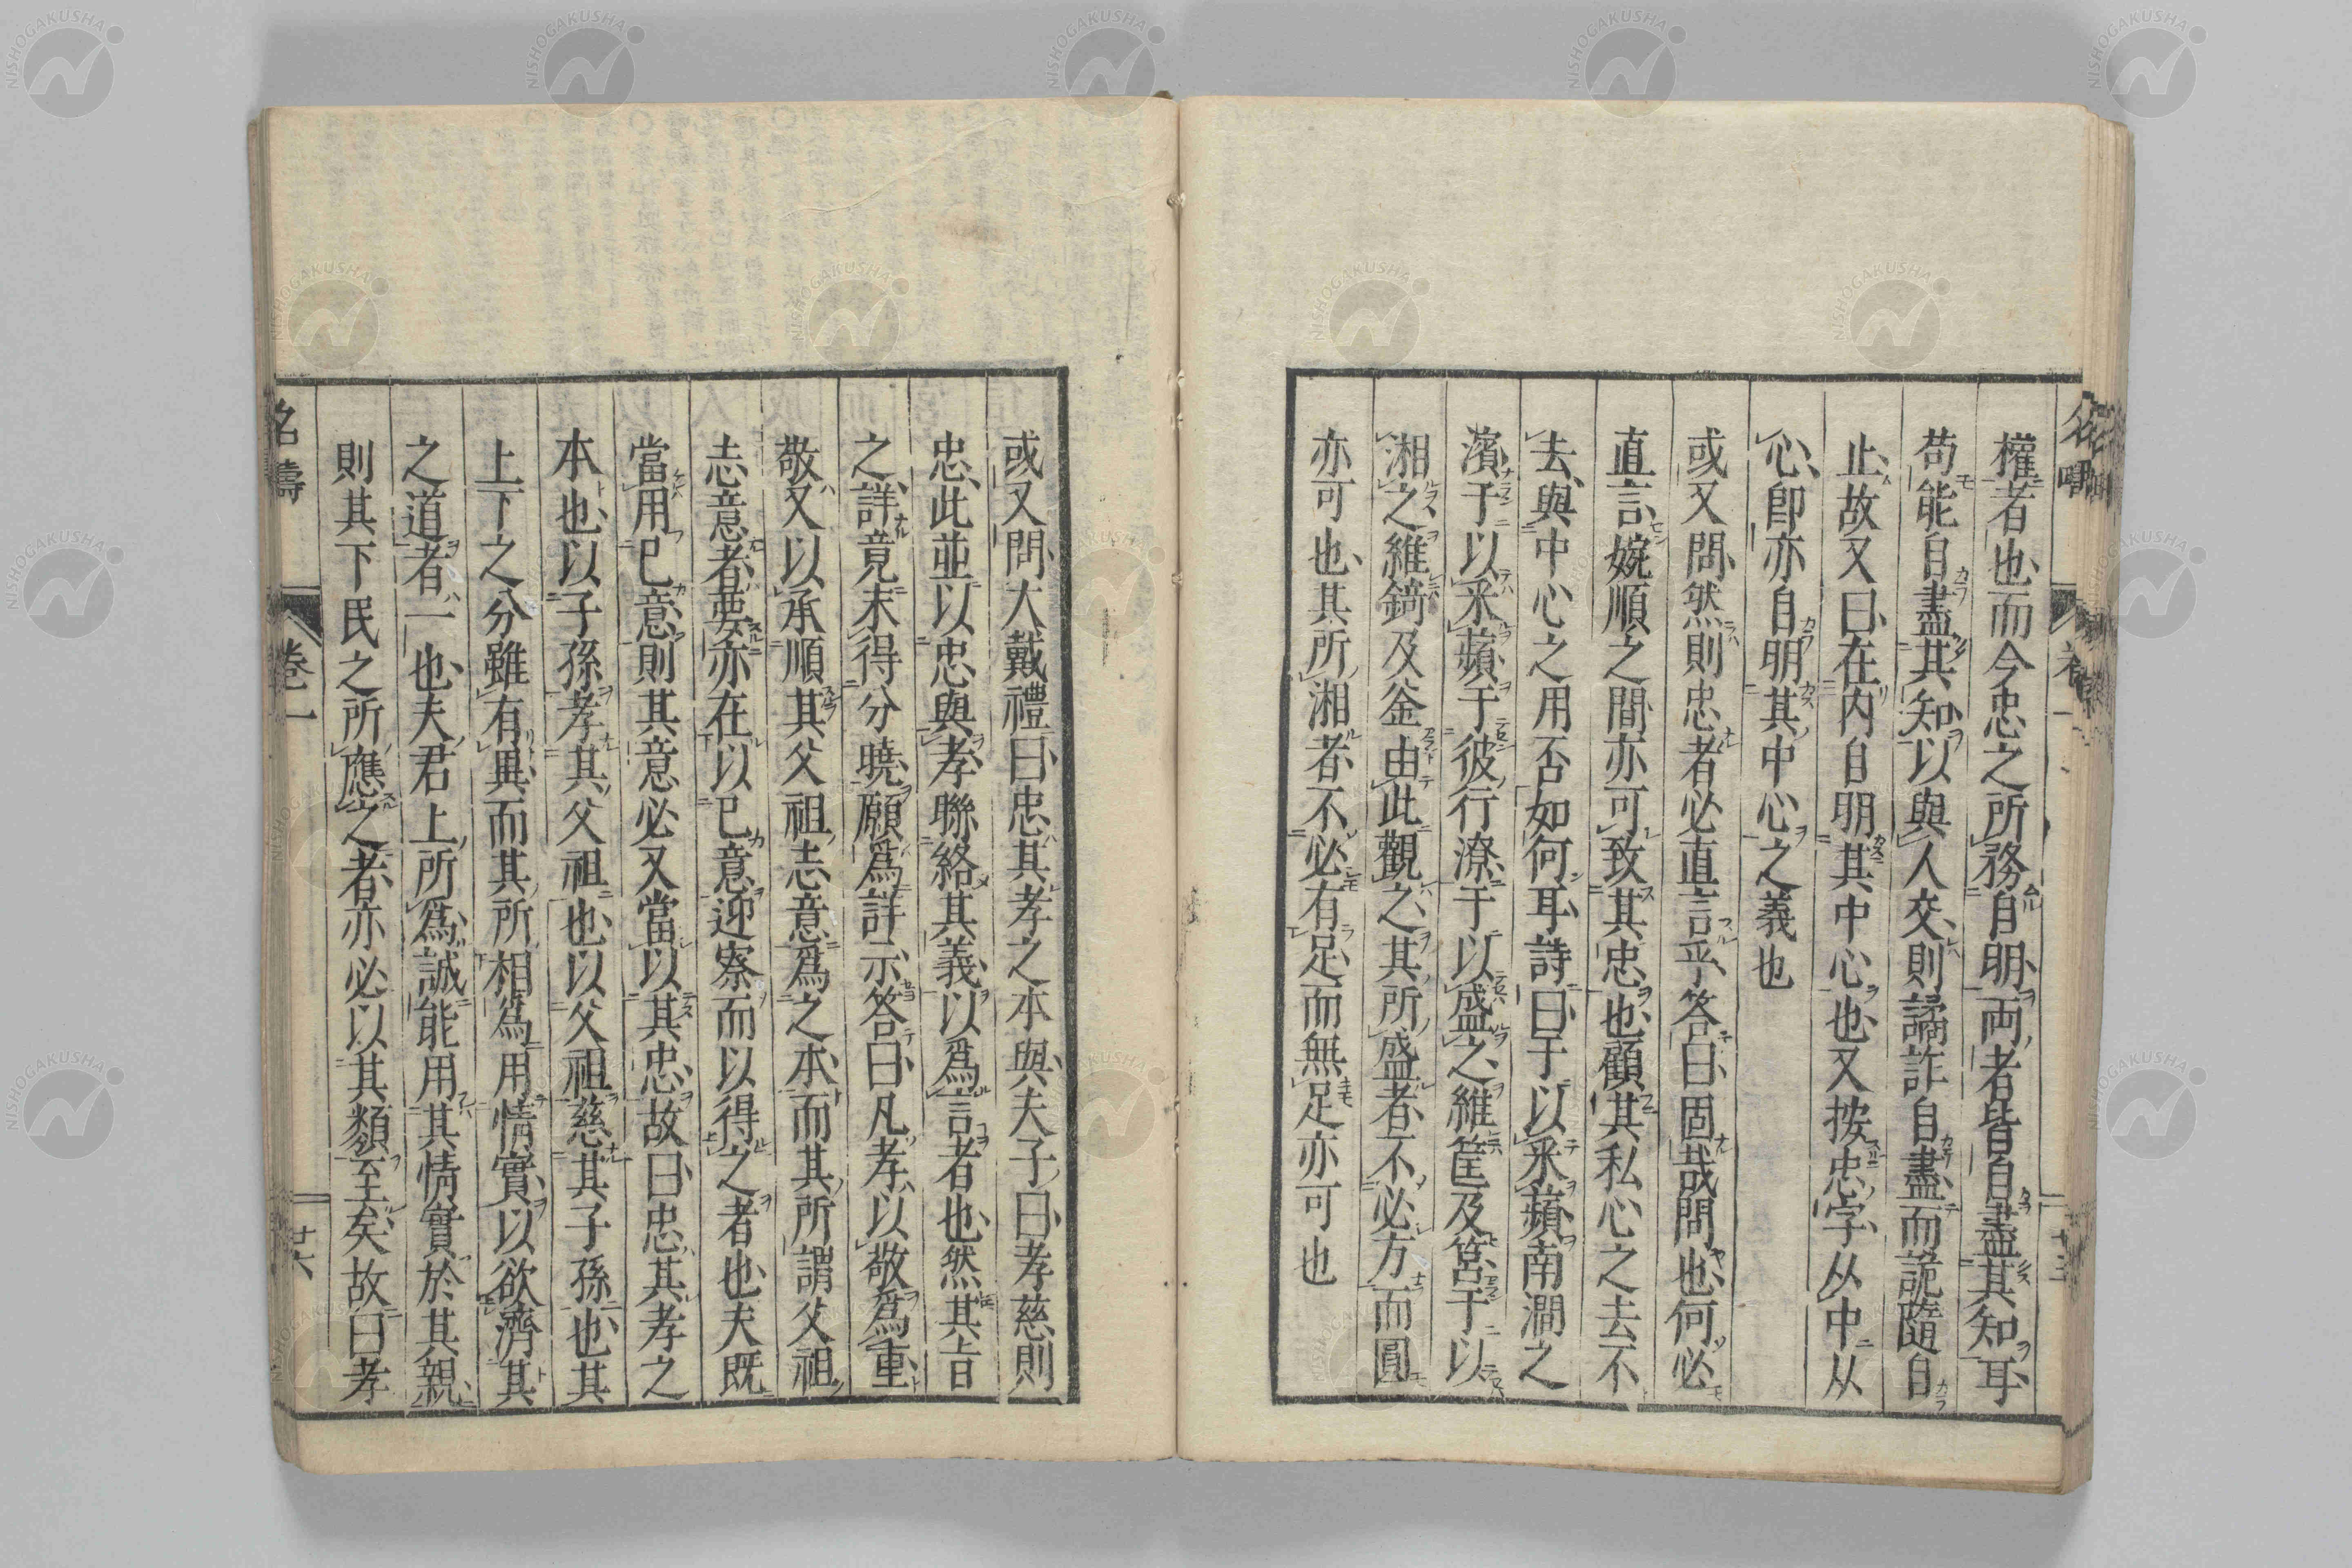 權者也而今忠之所務自明兩者皆自盡其知耳
苟能自盡其知以與人交則譎詐自盡而詭隨自
止故又曰在内自明其中心也又按忠字从中从
心卽亦自明其中心之義也
或又問然則忠者必直言乎答曰固哉問也何必
直言婉順之間亦可致其忠也顧其私心之去不
去與中心之用否如何耳詩曰于以釆蘋南澗之
濱于以釆蘋于彼行潦于以盛之維筐及筥于以
湘之維錡及釜由此觀之其所盛者不必方而圓
亦可也其所湘者不必有足而無足亦可也
或又問大戴禮曰忠其孝之本與夫子曰孝慈則
忠此並以忠與孝聯絡其義以爲言者也然其旨
之詳竟未得分曉願爲詳示答曰凡孝以敬爲重
敬又以承順其父祖志意爲之本而其所謂父祖
志意者要亦在以己意迎察而以得之者也夫既
當用己意則其意必又當以其忠故曰忠其孝之
本也以子孫孝其父祖也以父祖慈其子孫也其
上下之分雖有異而其所相爲用情實以欲濟其
之道者一也夫君上所爲誠能用其情實於其親
則其下民之所應之者亦必以其類至矣故曰孝
名疇
卷一
廿六